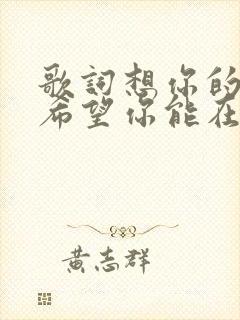 歌詞想你的
希望你能在
黄志群